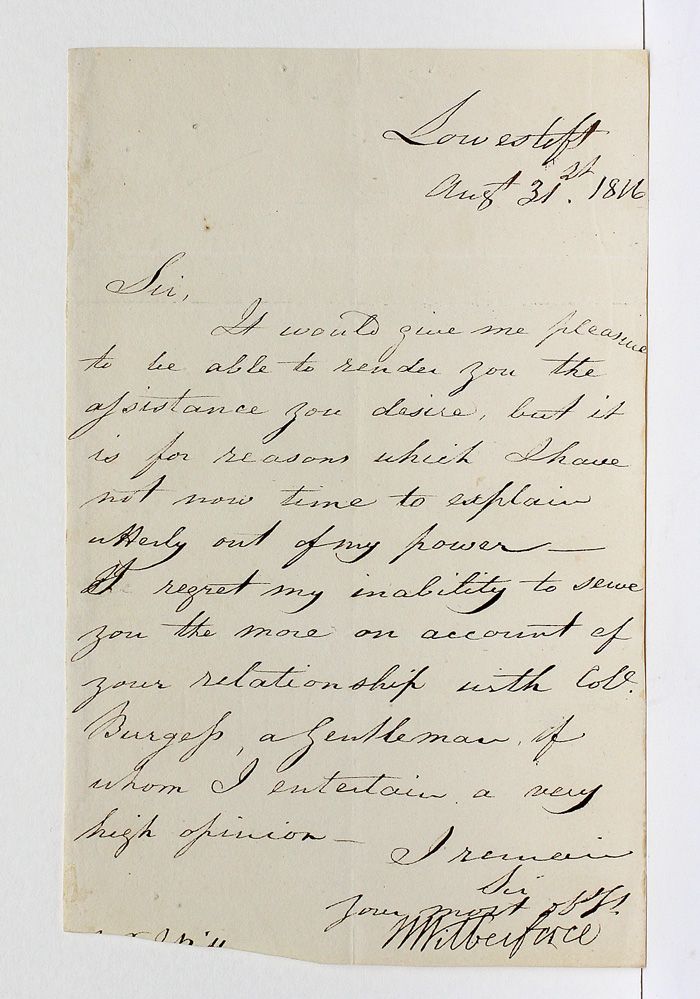 Lowestoft
Augt 31st. 1816
Sir,
It would give me pleasure
to be able to render you the
assistance you desire, but it
is for reasons which I have
not now time to explain
utterly out of my power —
I regret my inability to serve
you the more on account of
your relationship with Col.
Burgess, a Gentleman, of
whom I entertain a very
high opinion —
I remain
Sir
your most obdt
W Wilberforce